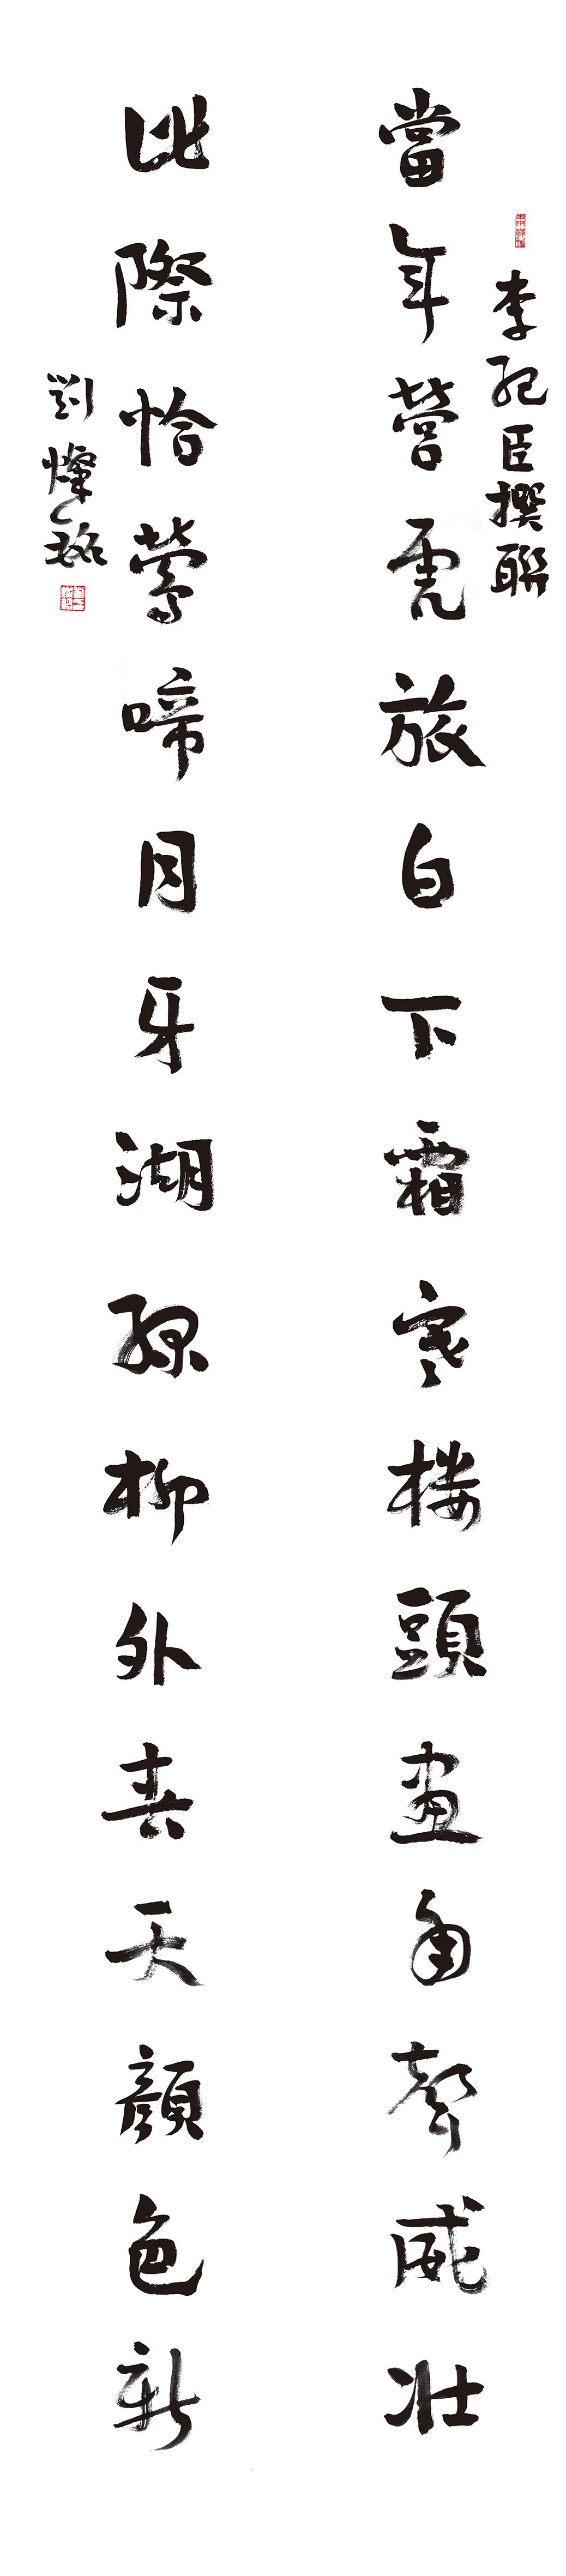 當年營虎旅白下霜寒樓頭畫角聲威壯
李純臣撰聯
此際恰鶯啼月牙湖綠柳外春天顏色新
劉燦銘